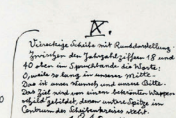 IX.
Viereckige Scheibe mit Randverstellung.
Zwischen den Jahrzahlziffern 18 und
40 oben im Spruchbande die Worte:
O, weile so lang in unserer Mitte.
Das ist unser Wunsch und unsre Bitte.
Das Ziel wird von einem bekränzten Wappen-
schild gebildet, dessen untre Spitze im
Centrum des Scheibenkreises steht.